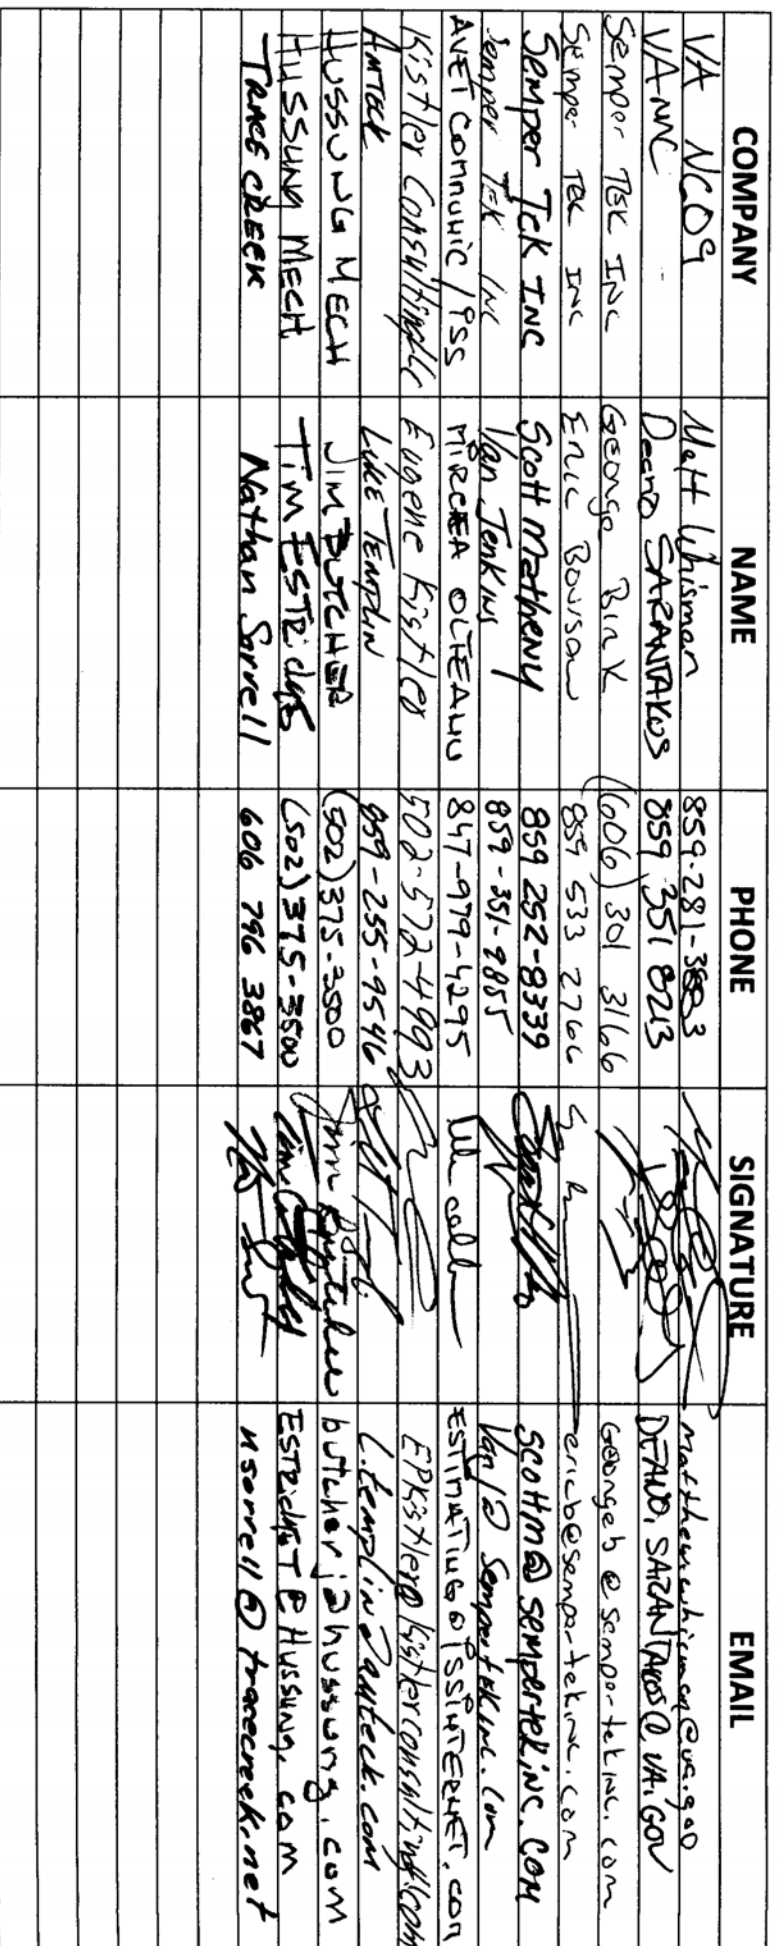 COMPANY NAME PHONE SIGNATURE EMAIL
VA NCO9 Matt Whisman 859-281-3883 matthew.whisman@va.gov
VA NNC Deano SARANTAKOS 859 351 0213 DEANO.SARANTAKOS@VA.GOV
Semper TEK INC George Bink (606) 301 3166 Georgeb@sempertekinc.com
Semper TEK INC Eric Bourson 859 533 2766 ericb@sempertekinc.com
Semper Tek INC Scott Matheny 859 252-8339 scottm@sempertekinc.com
Semper TEK INC Van Jenkins 859-351-9855 Vanj@sempertekinc.com
AVET COMMUNIC / PSS MIRCEA OLTEANU 847-979-4295 ESTIMATING@PSSINTERNET.COM
Kistler Consulting LLC Eugene Kistler 502-572-4993 EPKistler@kistlerconsulting.com
AMTECK LUKE TEMPLIN 859-255-9546 L.templin@amteck.com
HUSSUNG MECH JIM BUTCHER (502) 375-3500 Jim Butcher butcherj@hussung.com
HUSSUNG MECH TIM ESTRIDGE (502) 375-3500 ESTRIDGET@HUSSUNG.COM
TRACE CREEK Nathan Sorrell 606 796 3867 nsorrell@tracecreek.net